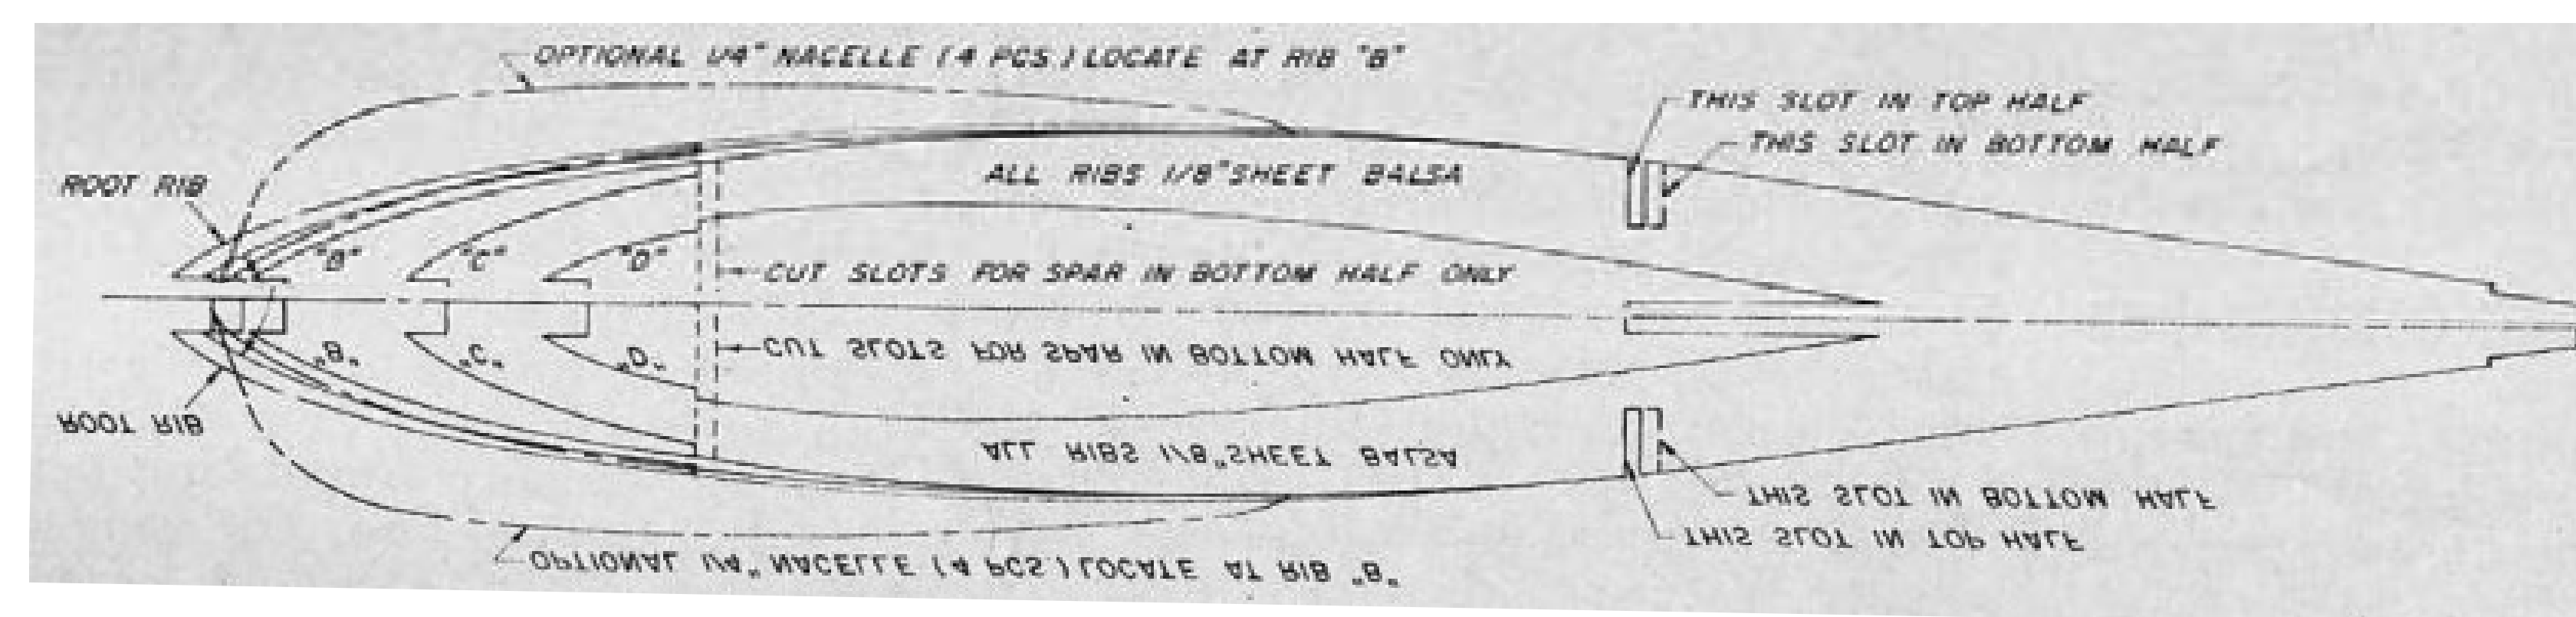 OPTIONAL 1/4" NACELLE (4 PCS.) LOCATE AT RIB "B"
THIS SLOT IN TOP HALF
THIS SLOT IN BOTTOM HALF
ROOT RIB
ALL RIBS 1/8" SHEET BALSA
"B" "C" "D"
CUT SLOTS FOR SPAR IN BOTTOM HALF ONLY
CUT SLOTS FOR SPAR IN BOTTOM HALF ONLY
"B" "C" "D"
ROOT RIB
ALL RIBS 1/8" SHEET BALSA
THIS SLOT IN BOTTOM HALF
THIS SLOT IN TOP HALF
OPTIONAL 1/4" NACELLE (4 PCS.) LOCATE AT RIB "B"